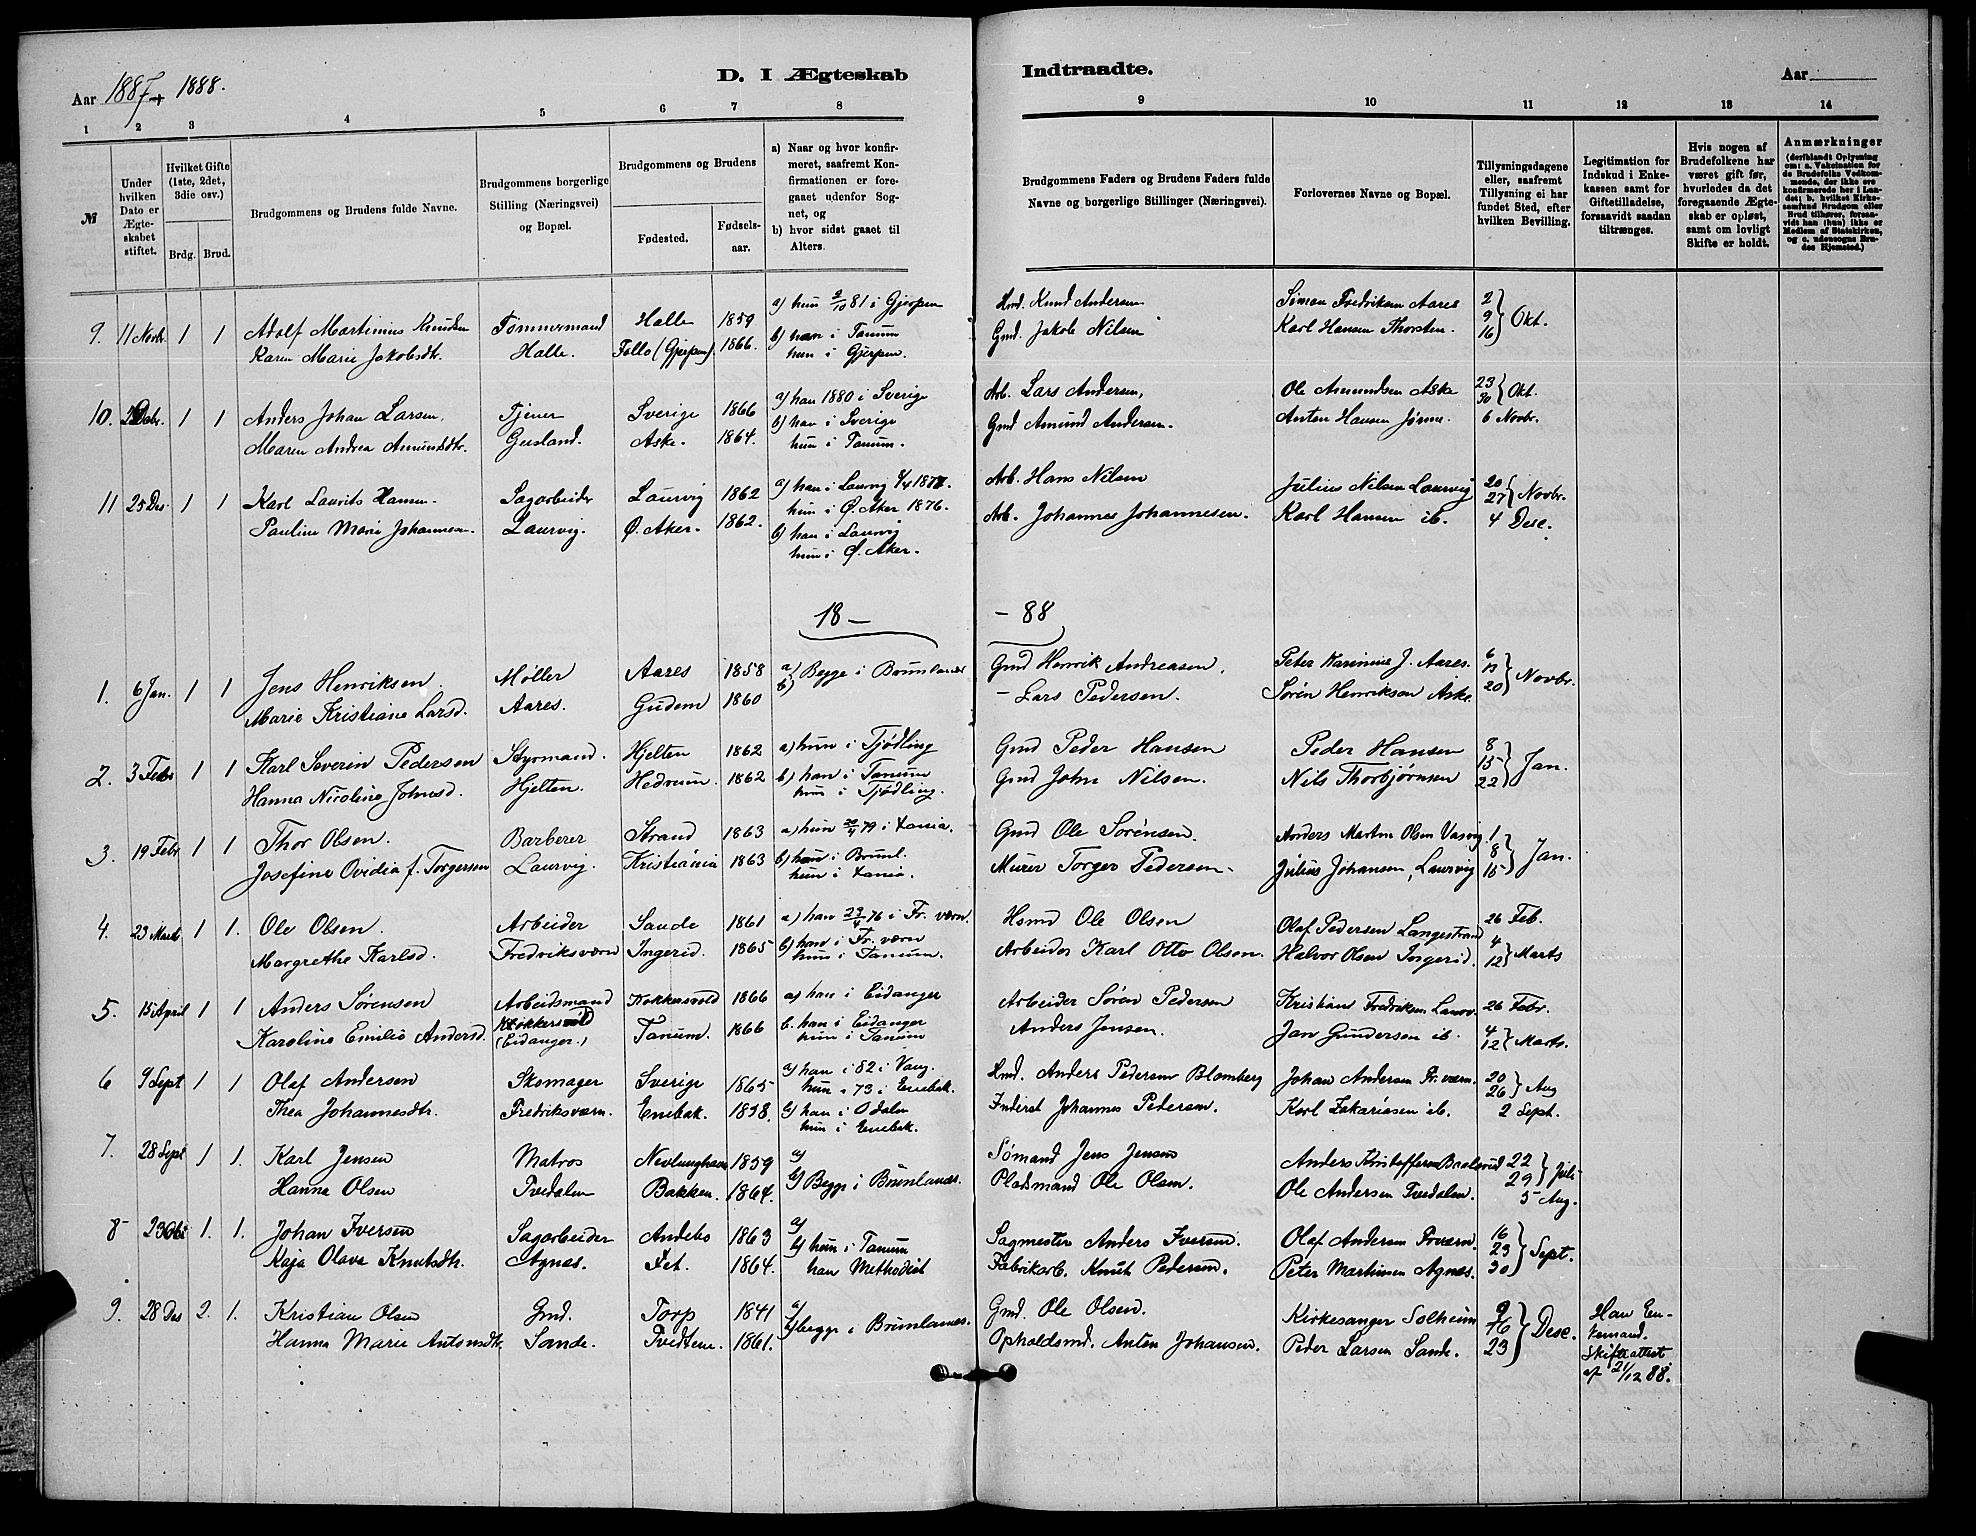 Aar 1887 + 1888.
D. I Ægteskab
Indtraadte.
Aar
1 2 3 4 5 6 7 8 9 10 11 12 13 14
№
Under hvilken Dato er Ægteskabet stiftet.
Hvilket Gifte (1ste, 2det, 3die osv.)
Brdg. Brud.
Brudgommens og Brudens fulde Navne.
Brudgommens borgerlige Stilling (Næringsvei) og Bopæl.
Brudgommens og Brudens
Fødested.
Fødselsaar.
a) Naar og hvor konfirmeret, saafremt Konfirmationen er foregaaet udenfor Sognet, og
b) hvor sidst gaaet til Alters.
Brudgommens Faders og Brudens Faders fulde Navne og borgerlige Stillinger (Næringsvei).
Forlovernes Navne og Bopæl.
Tillysningsdagene eller, saafremt Tillysning ei har fundet Sted, efter hvilken Bevilling.
Legitimation for Indskud i Enkekassen samt for Giftetilladelse, forsaavidt saadan tiltrænges.
Hvis nogen af Brudefolkene har været gift før, hvorledes da det foregaaende Ægteskab er opløst, samt om lovligt Skifte er holdt.
Anmærkninger
(deriblandt Oplysning om: a. Vakcination for de Brudefolks Vedkommende, der ikke ere konfirmerede her i Landet; b. hvilket Kirkesamfund Brudgom eller Brud tilhører, forsaavidt han (hun) ikke er Medlem af Statskirken, og c. udensogns Brudes Hjemsted.)
9. 11 Novbr. 1 1 Adolf Martinius Knudsen Tømmermand Halle 1859 a) hun 2/10 81 i Gjerpen Hmd. Knud Andersen Simon Fredriksen Aares 2
Karen Marie Jakobsdtr. Halle. Follo (Gjerpen) 1866. b) han i Tanum Gmd. Jakob Nilsen Karl Hansen Thorsten. 9 } Okt.
hun i Gjerpen. 16
10. 1 1 Anders Johan Larsen. Tjener Sverige 1866 a) han 1880 i Sverige Arb. Lars Andersen, Ole Amundsen Aske 23
Maren Andrea Amundsdtr. Gusland. Aske. 1864. b) han i Sverige Gmd Amund Andersen. Anton Hansen 30 } Okt.
hun i Tanum. 6 Novbr.
11 25 Des. 1 1 Karl Laurits Hansen Sagarbeider Laurvig 1862 a) han i Laurvig Arb. Hans Nilsen Julius Nilsen Laurvig 20
Pauline Marie Johannesen. Laurvig. Ø. Aker. 1862. hun i Ø. Aker 1876. Arb. Johannes Johannesen. Karl Hansen ib. 27 } Novbr.
b) han i Laurvig 4 Desc.
hun i Ø. Aker.
18 — — 88
1. 6 Jan. 1 1 Jens Henriksen. Møller Aares 1858 a) Begge i Brunlanes Gmd Henrik Andreasen. Peter Karinius J. Aares. 6
Marie Kristiane Larsd. Aares. Gudem 1860 b) – Lars Pedersen. Søren Henriksen Aske 13 } Novbr.
20
2. 3 Febr 1 1 Karl Severin Pedersen Styrmand. Hjelten 1862 a) hun i Tjødling Gmd Peder Hansen Peder Hansen 8
Hanna Nicoline Johnsd. Hjelten. Hedrum. 1862 b) han i Tanum Gmd John Nilsen. Nils Thorbjørnsen 15 } Jan.
hun i Tjødling. 22
3. 19 Febr 1 1 Thor Olsen. Barberer Strand 1863 a) hun 20/4 79 i Xania. Gmd Ole Sørensen. Anders Martin Olsen Vasvig 1
Josefine Ovidia f. Torgersen Laurvig. Kristiania 1863 b) han i Brunl. Murer Torger Pedersen. Julius Johansen, Laurvig 8 } Jan.
hun i Xania. 15
4. 23 Marts 1 1. Ole Olsen. Arbeider Sande 1861 a) han 23/4 76 i Fr. værn. Hsmd Ole Olsen Olaf Pedersen Langestrand 26 Feb.
Margrethe Karlsd. Fredriksværn Ingerid. 1865 b) han i Fr. værn Arbeider Karl Otto Olsen. Halvor Olsen Ingerid. 4
hun i Tanum. 12 } Marts
5. 15 April 1 1 Anders Sørensen Arbeidsmand Kokkersvold 1866 a) han i Eidanger Arbeider Søren Pedersen Kristian Fredriksen Laurv. 26 Febr.
Karoline Emilie Andersd. Kokkersvold (Eidanger.) Tanum. 1866 b. han i Eidanger Anders Jensen. Jan Gundersen ib. 4
hun i Tanum 12 } Marts.
6 9 Sept 1 1 Olaf Andersen Skomager Sverige 1865 a) han i 82 i Vang. Hmd. Anders Pedersen Blomberg Johan Andersen Fr. værn. 20
Thea Johannesdtr. Fredriksværn. Enebak. 1858. hun i 73 i Enebak. Inderst Johannes Pedersen. Karl Zakariasen ib. 26 } Aug
b) han i Odalen 2 Sept.
hun i Enebak.
7. 28 Sept 1 1. Karl Jensen Matros Nevlunghavn 1859 a) Sømand Jens Jensen Anders Kristoffersen 22
Hanna Olsen Tvedalen Bakken. 1864. b) Begge i Brunlanes. Pladsmand Ole Olsen. Ole Andersen Tvedalen. 29 } Juli
5 Aug.
8 23 1. 1. Johan Iversen Sagarbeider Andebo 1863 a) Sagmester Anders Iversen. Olaf Andersen Frværn. 16
Kaja Olava Knutsdtr. Agnes. Fet. 1864. b) hun i Tanum Fabrikarb. Knut Pedersen. Peter Martinsen Agnes. 23 } Sept.
han Methodist 30
9. 28 Des 2. 1. Kristian Olsen Gmd. Torp 1841 a) Gmd. Ole Olsen. Kirkesanger Solheim 9 Han Enkemand.
Hanna Marie Antonsdtr. Sande. Tvedtene. 1861. b) begge i Brunlanes. Opholdsmd. Anton Johansen. Peder Larsen Sande. 16 } Desc. Skifteattest
23 af 21/12 88.